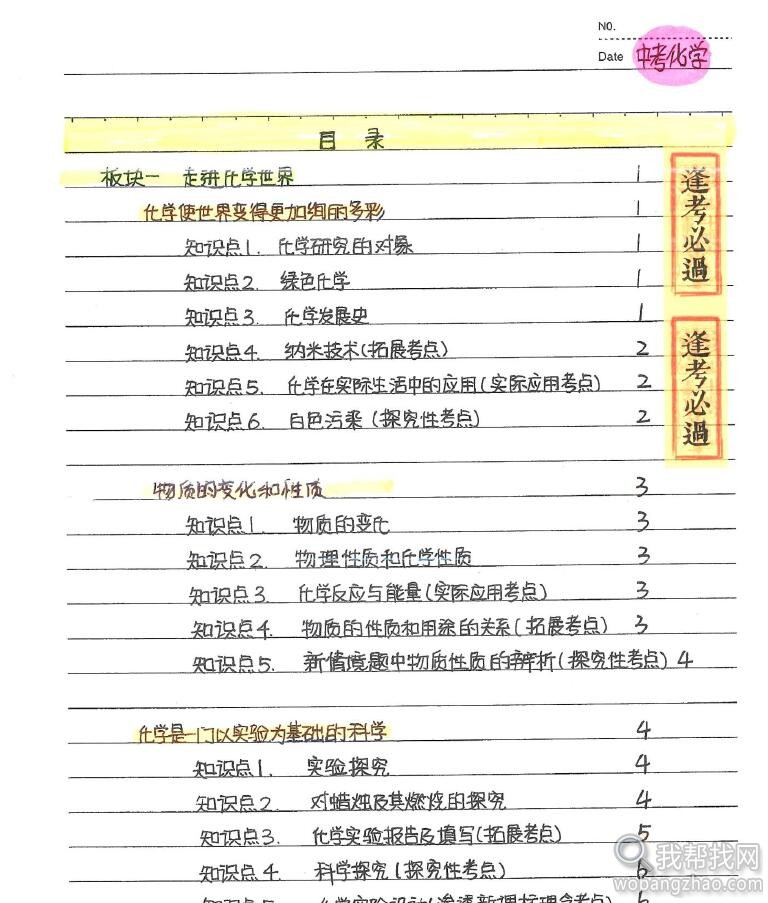 NO.
Date 中考化学
目 录
板块一 走进化学世界 1
化学使世界变得更加绚丽多彩 1
知识点1. 化学研究的对象 1
知识点2. 绿色化学 1
知识点3. 化学发展史 1
知识点4. 纳米技术(拓展考点) 2
知识点5. 化学在实际生活中的应用(实际应用考点) 2
知识点6. 白色污染(探究性考点) 2
逢考必過
逢考必過
物质的变化和性质 3
知识点1. 物质的变化 3
知识点2. 物理性质和化学性质 3
知识点3. 化学反应与能量(实际应用考点) 3
知识点4. 物质的性质和用途的关系(拓展考点) 3
知识点5. 新情境题中物质性质的辨析(探究性考点) 4
化学是一门以实验为基础的科学 4
知识点1. 实验探究 4
知识点2. 对蜡烛及其燃烧的探究 4
知识点3. 化学实验报告及填写(拓展考点) 5
知识点4. 科学探究(探究性考点) 6
我帮找网
wobangzhao.com